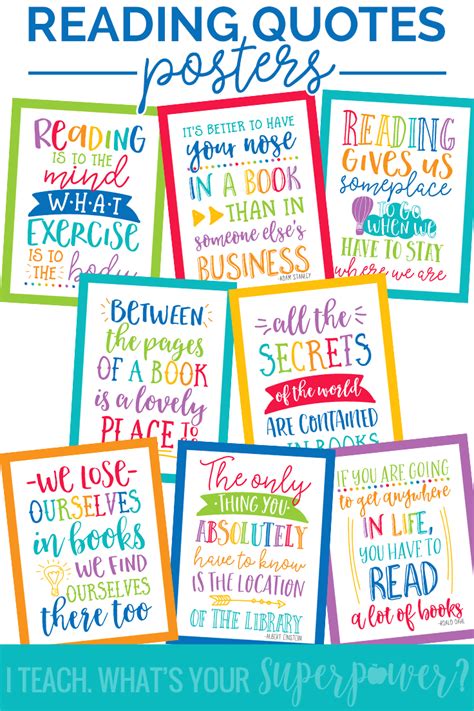 READING QUOTES
posters
READING
IS TO THE
mind
WHAT
EXERCISE
IS TO THE
body
IT'S BETTER TO HAVE
your nose
IN A BOOK
THAN IN
someone else's
BUSINESS
-ADAM STANELY
READING
GIVES US
someplace
TO GO
WHEN WE
HAVE TO STAY
where we are
BETWEEN
the pages
OF A BOOK
is a lovely
PLACE TO
all the
SECRETS
of the world
ARE CONTAINED
IN BOOKS
-WE LOSE-
OURSELVES
in books
WE FIND
OURSELVES
there too
The only
THING YOU
ABSOLUTELY
have to know
IS THE LOCATION
OF THE LIBRARY
-ALBERT EINSTEIN
IF YOU ARE GOING
to get anywhere
IN LIFE,
YOU HAVE TO
READ
a lot of books
-ROALD DAHL
I TEACH. WHAT'S YOUR Superpower?